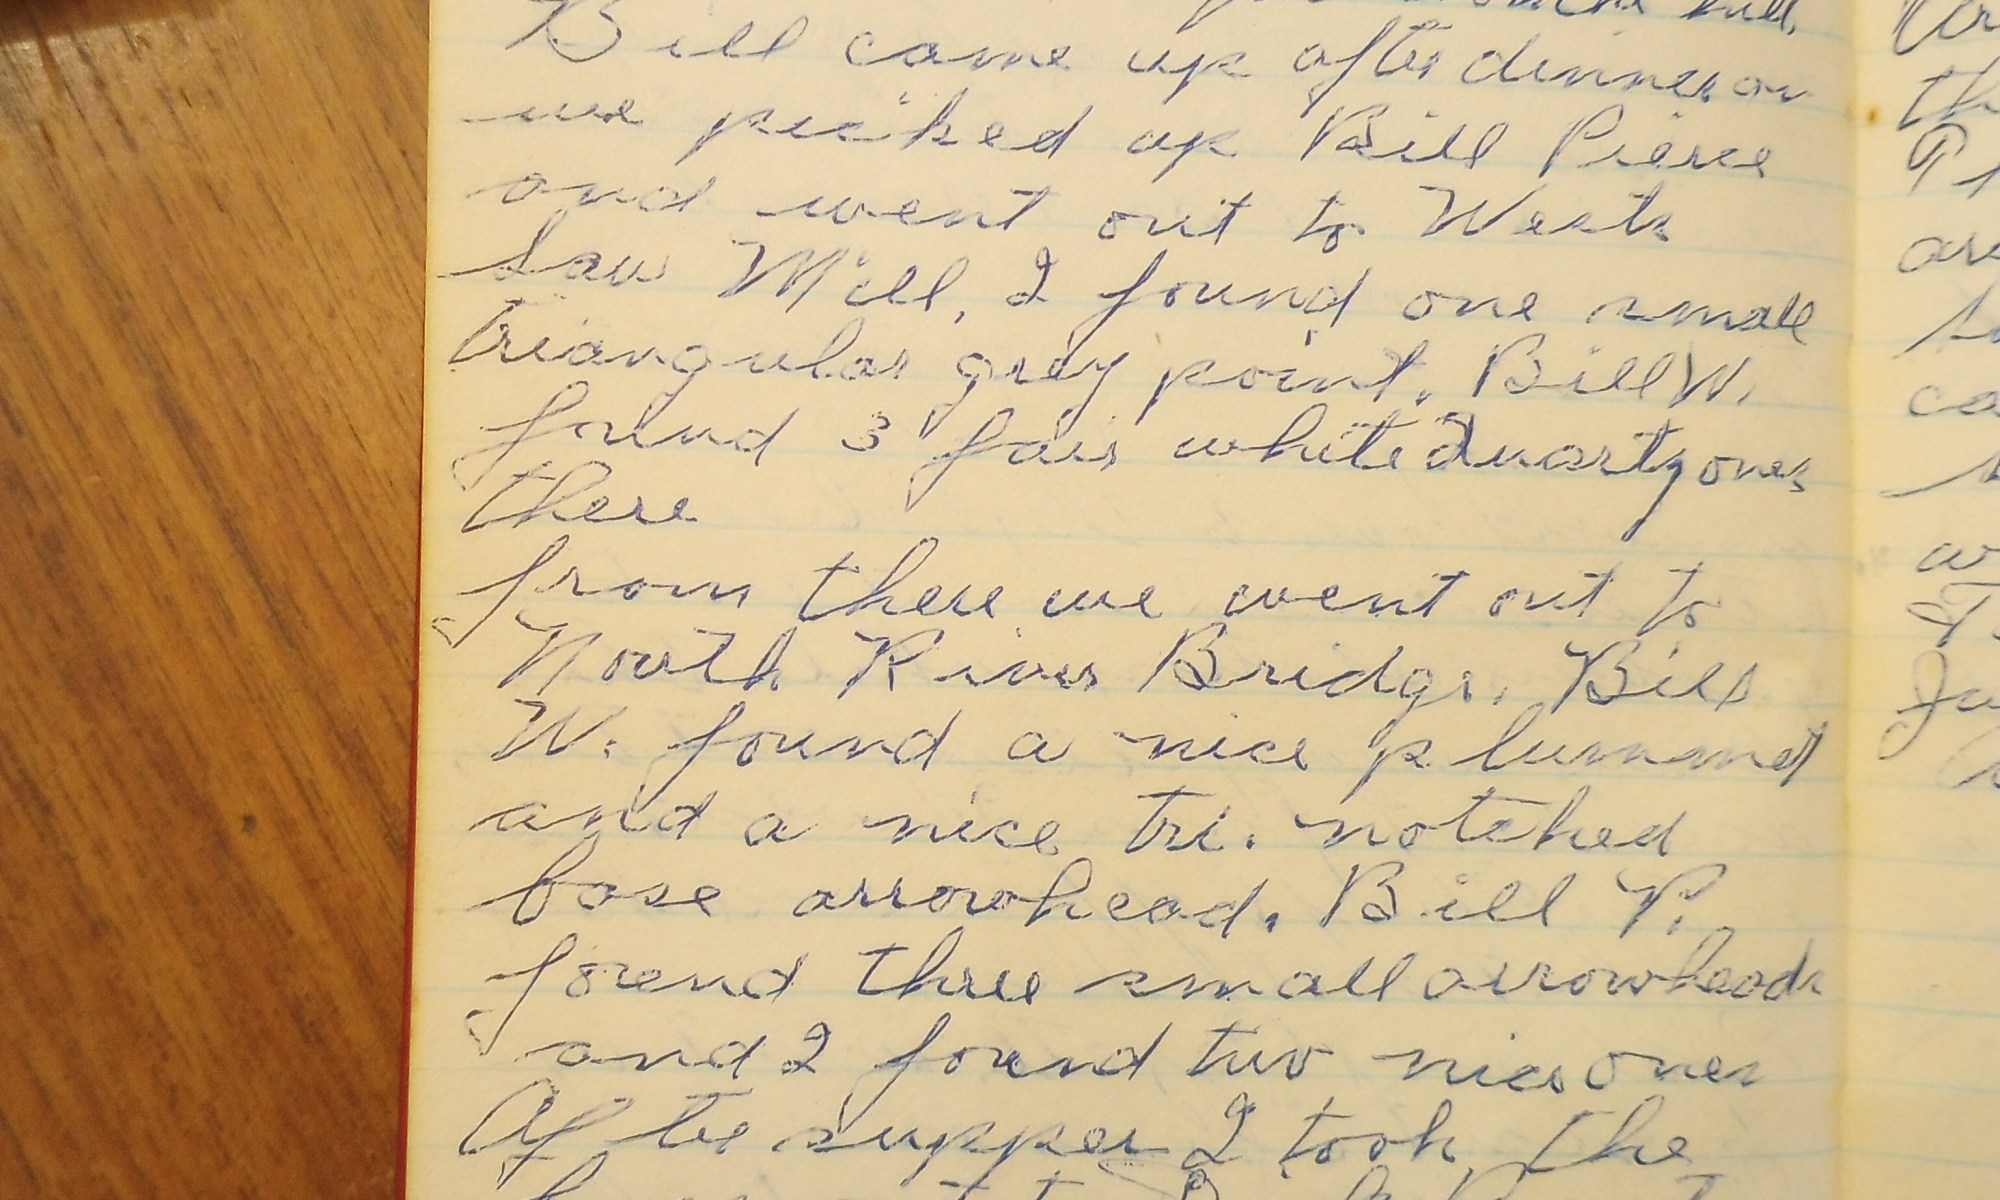 hill.
Bill came up after dinner an
we picked up Bill Pierce
and went out to Wests
Saw Mill, I found one small
triangular grey point. Bill W.
found 3 fair white Quartz ones
there
from there we went out to
North River Bridge. Bill
W. found a nice plummet
and a nice tri. notched
base arrowhead. Bill P.
found three small arrowheads
and I found two nice ones
After supper I took the